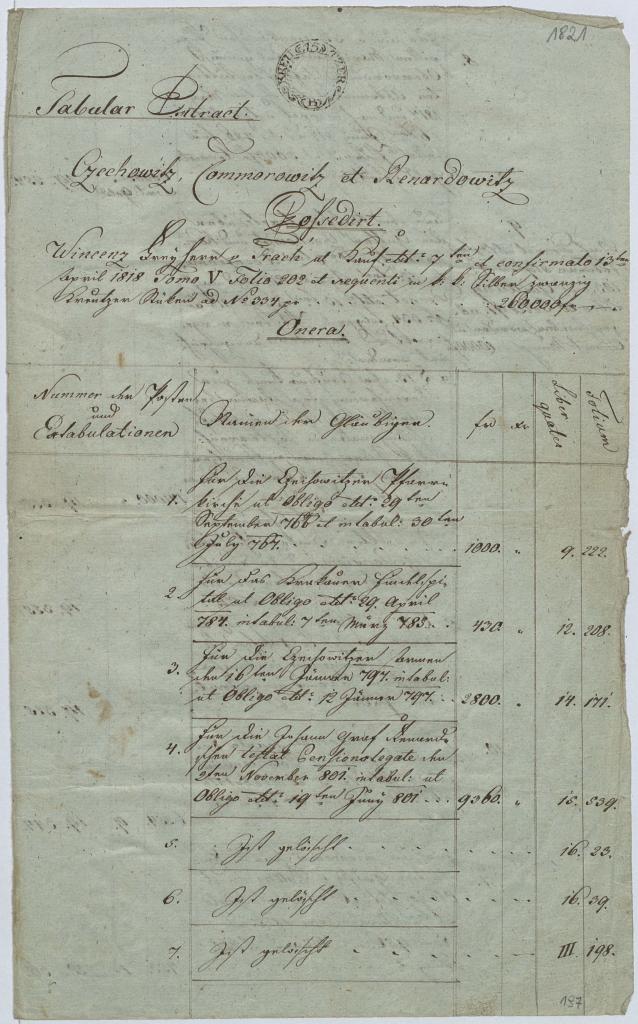 1821
15
Tabular Extract.
Czechowitz, Commorowitz et Renardowitz
Possedirt.
Wincenz Freyherr v. ut Kauf dtto 7ten et confirmato 13ten
April 1818 Tomo V Folio 202 et sequenti in k: k: Silber zwanzig
Kreutzer Stüken ad No 334 pr 260,000 fr
Onera.
Nummer der Posten
und
Extabulationen
Namen der Gläubiger.
fr xr
Liber
quales
Folium
1. Für die Czechowitzer Pfarr-
kirche ut Obligo dtto 29ten
September 766 et intabul: 30ten
July 767. 1000. " 9. 222.
2. Für das Krakauer Findelspi-
tal ut Obligo dtto 29. April
784. intabul: 7ten März 785. 430. " 12. 208.
3. Für die Czechowitzer Armen
den 16ten Jänner 797. intabul:
ut Obligo dtto 12 Jänner 797. 2800. " 14. 171.
4. Für die Johann Graf Renardi-
schen den
2ten November 801. intabul: ut
Obligo dtto 19ten Juny 801. 9360. " 15. 539.
5. Ist gelöscht 16. 23.
6. Ist gelöscht 16. 39.
7. Ist gelöscht III. 198.
197